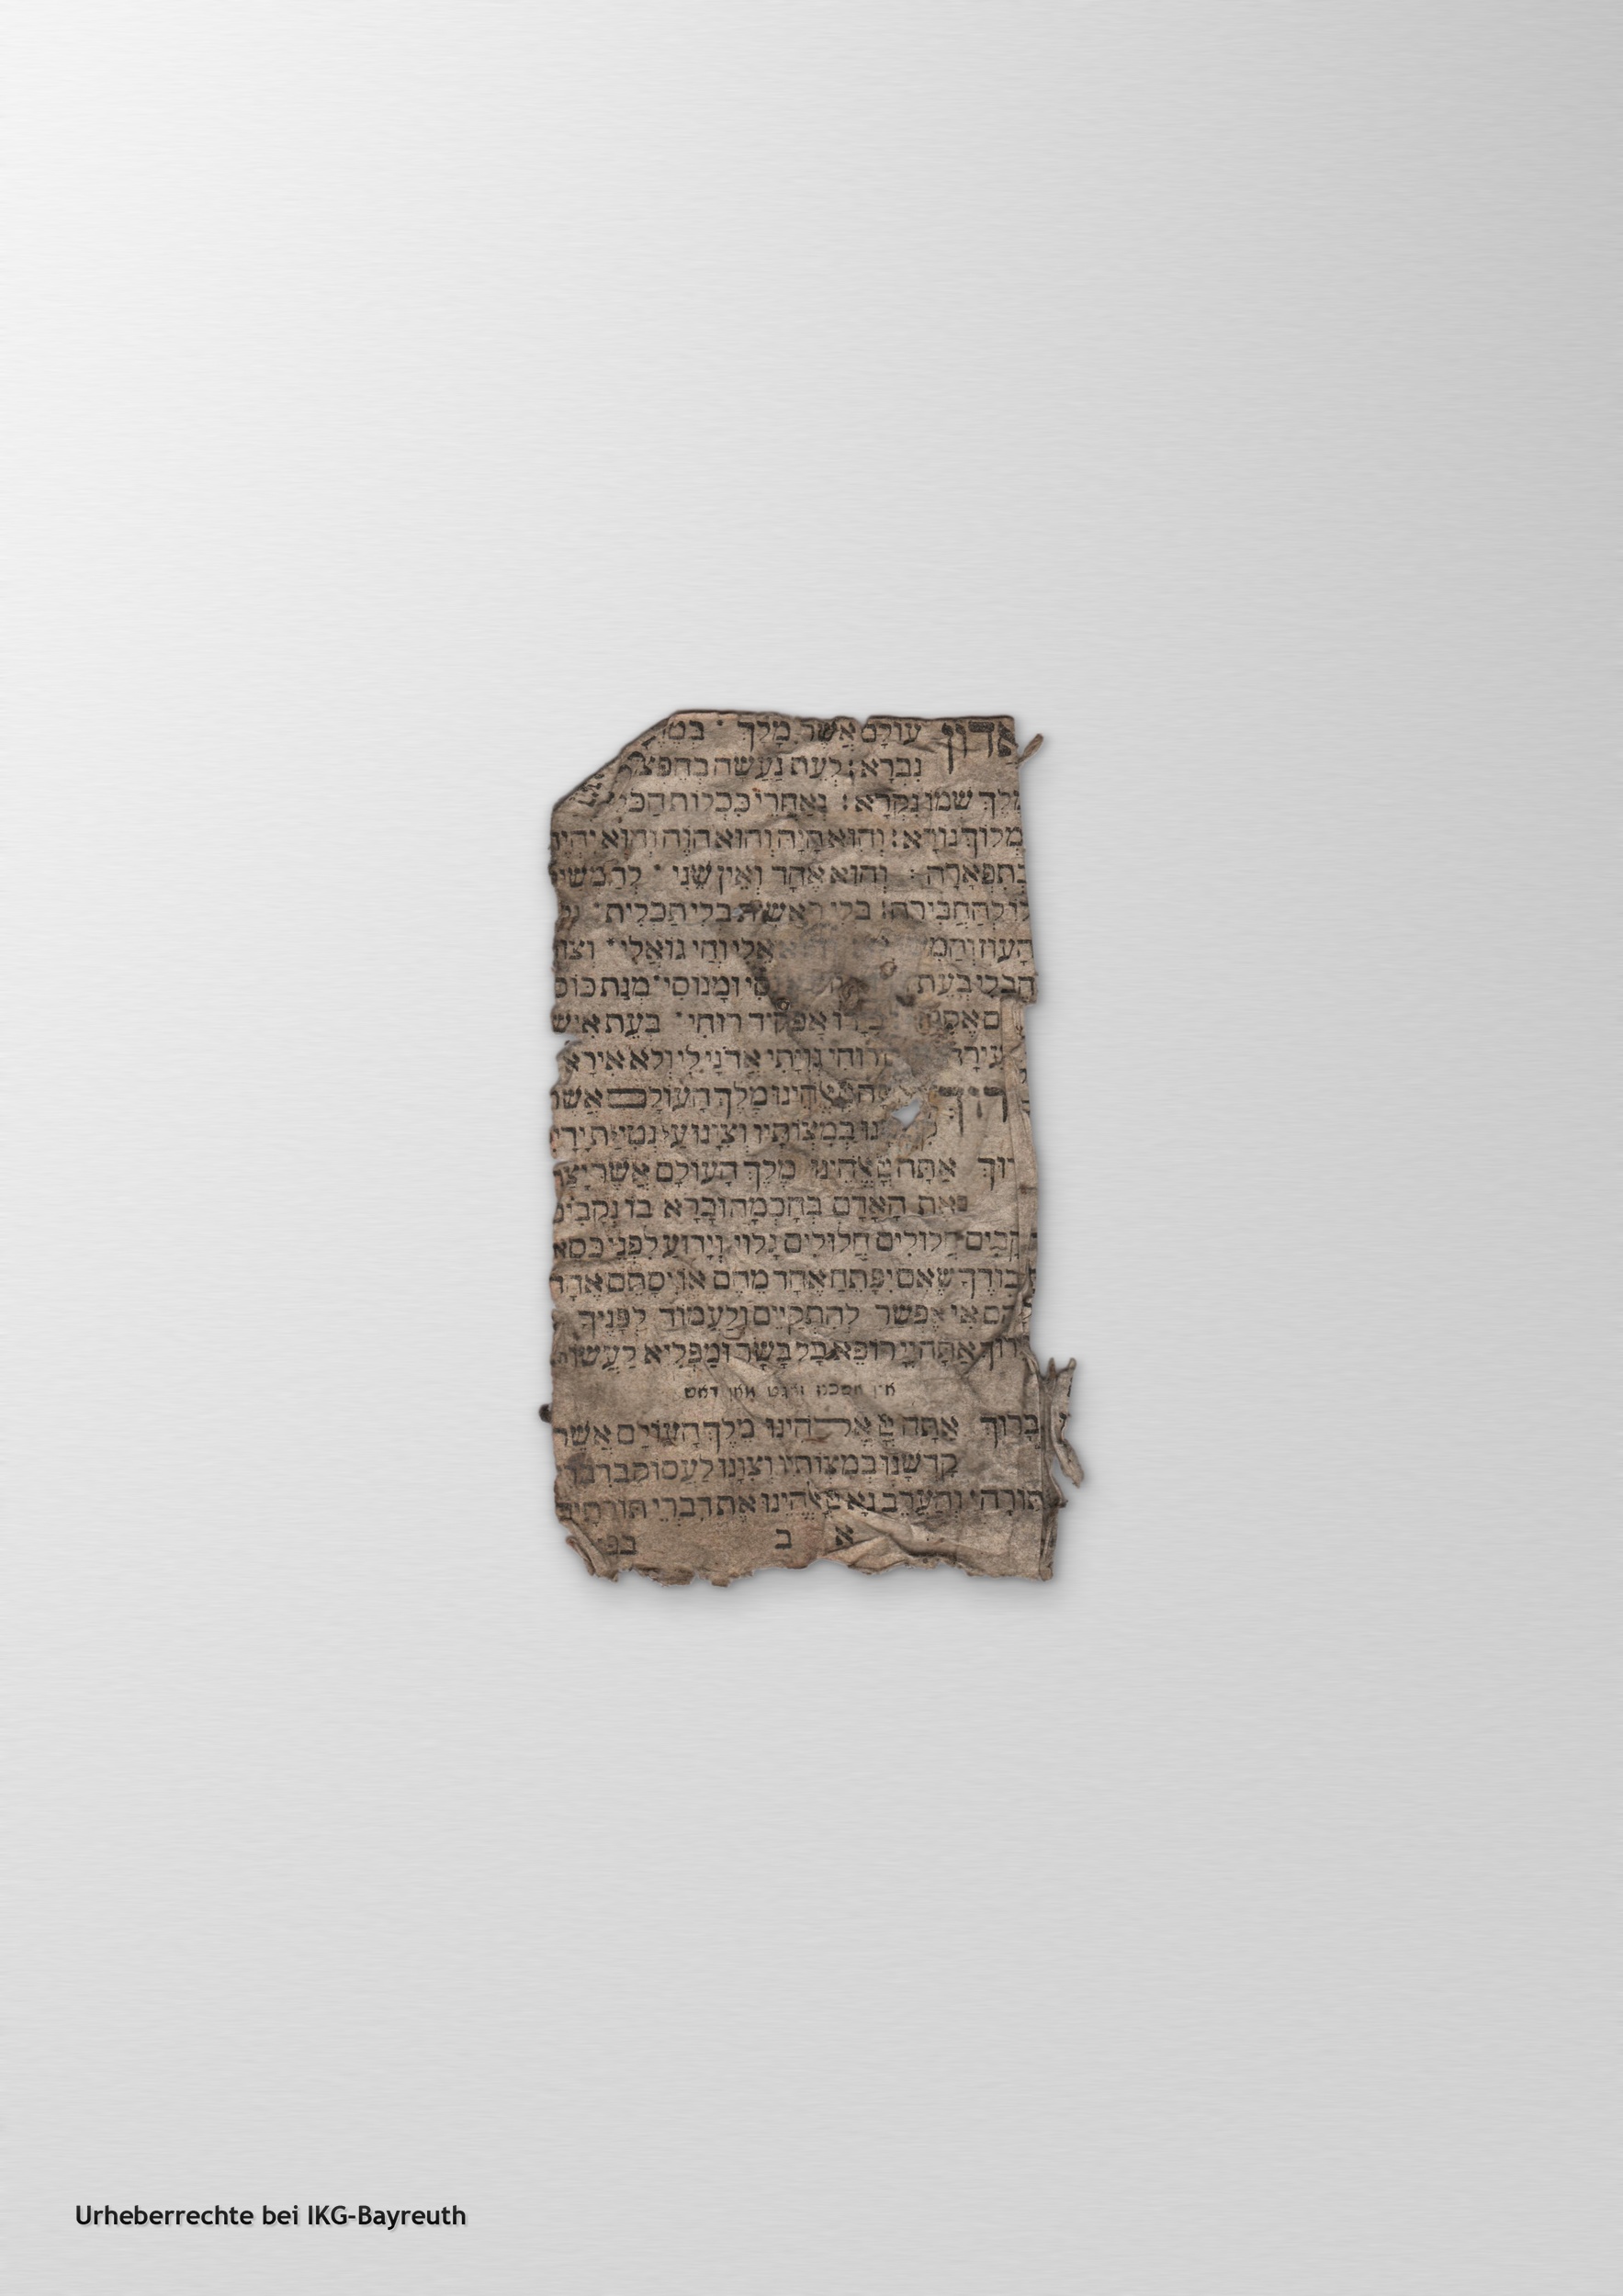 אדון עולם אשר מלך · בט
נברא: לעת נעשה בחפצו
מלך שמו נקרא: ואחרי ככלות הכ
ימלוך נורא: והוא היה והוא הוה והוא יהיה
בתפארה: והוא אחד ואין שני · להמשי
לו להחבירה: בלי ראשית בלי תכלית ·
העוז והמ אלי וחי גואלי · וצור
חבלי בעת סי ומנוסי · מנת כוס
אפקיד רוחי · בעת איש
רוחי גויתי אדני לי ולא אירא
רוך הינו מלך העולם אשר
נו במצותיו וצונו על נטילת ידי
רוך אתה הינו מלך העולם אשר יצר
את האדם בחכמה וברא בו נקבים
נקבים חלולים חלולים גלוי וידוע לפני כסא
כבודך שאם יפתח אחד מהם או יסתם אחד
מהם אי אפשר להתקיים ולעמוד לפניך
רוך אתה יי רופא כל בשר ומפליא לעשות
ברוך אתה הינו מלך העולם אשר
קדשנו במצותיו וצונו לעסוק בדברי
תורה: והערב נא הינו את דברי תורתיך
א ב בפי
Urheberrechte bei IKG-Bayreuth